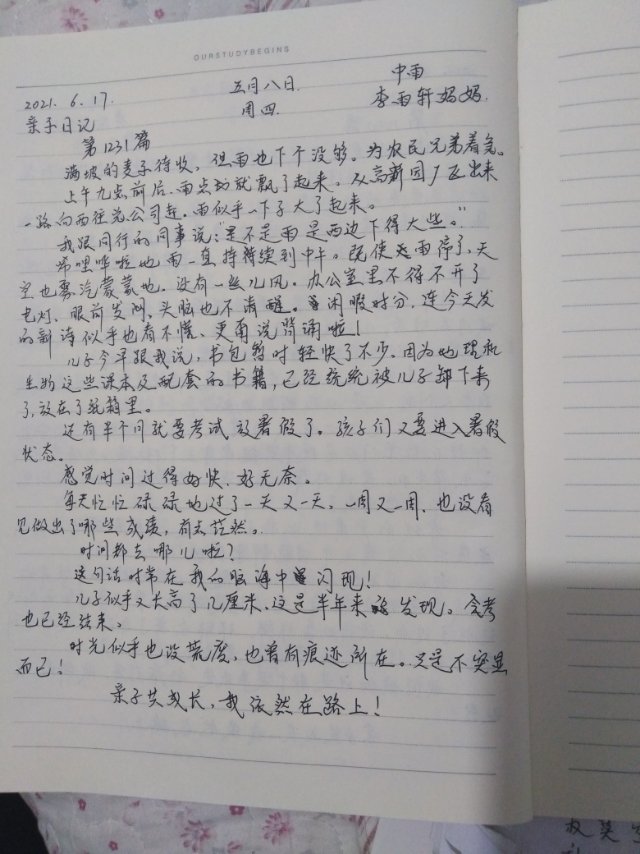 OURSTUDYBEGINS
2021. 6. 17. 五月八日 中雨
周四 李雨轩妈妈.
亲子日记
第1231篇
满坡的麦子待收，但雨也下个没够。为农民兄弟着急。
上午九点前后，雨点就飘了起来。从高新园厂区出来
一路向西往总公司赶。雨似乎一下子大了起来。
我跟同行的同事说：是不是雨是西边下得大些。"
稀哩哗啦地雨一直持续到中午。既使雨停了，天
空也雾汽蒙蒙地。没有一丝儿风。办公室里不得不开了
电灯、眼前发闷，头脑也不清醒。闲暇时分，连今天发
的新诗似乎也看不懂、更甭说背诵啦！
儿子今早跟我说，书包暂时轻快了不少。因为地理和
生物这些课本及配套的书籍，已经统统被儿子卸下来
了，放在了纸箱里。
还有半个月就要考试，放暑假了。孩子们又要进入暑假
状态。
感觉时间过得好快、好无奈。
每天忙忙碌碌地过了一天又一天，一周又一周，也没看
见做出了哪些成绩，有点茫然。
时间都去哪儿啦？
这句话时常在我的脑海中闪现！
儿子似乎又长高了几厘米，这是半年来发现。会考
也已经结束。
时光似乎也没荒度，也曾有痕迹所在。只是不突显
而已！
亲子共成长，我依然在路上！